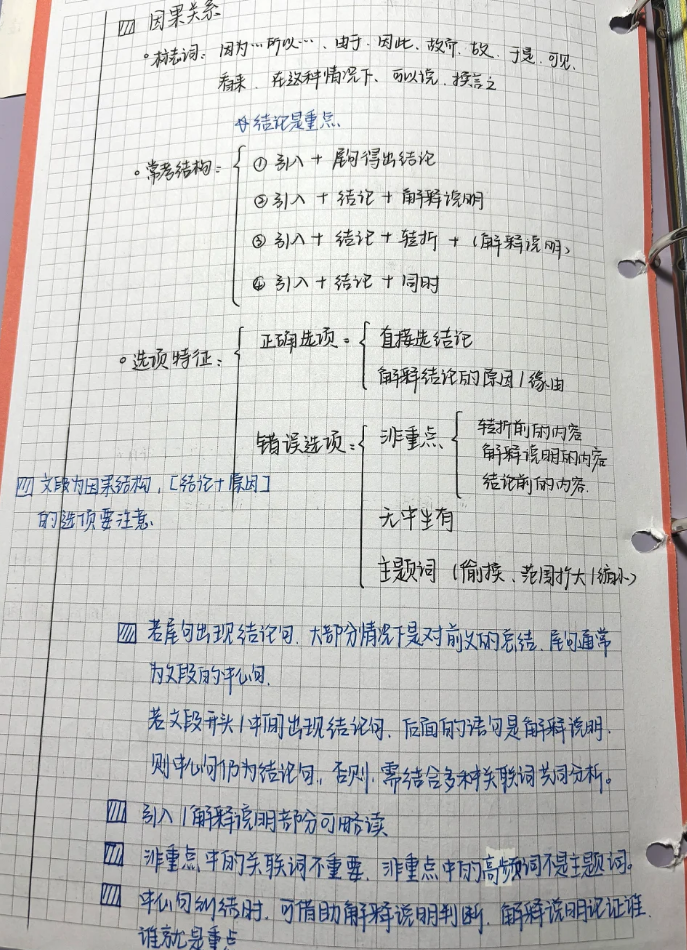 因果关系
。标志词：因为…所以…、由于、因此、故而、故、于是、可见、
看来、在这种情况下、可以说、换言之
结论是重点
。常考结构：
① 引入 + 尾句得出结论
② 引入 + 结论 + 解释说明
③ 引入 + 结论 + 转折 + (解释说明)
④ 引入 + 结论 + 同时
。选项特征：
正确选项。
直接选结论
解释结论的原因/缘由
错误选项：
非重点
转折前的内容
解释说明的内容
结论前的内容.
无中生有
主题词 (偷换、范围扩大/缩小)
文段为因果结构，[结论+原因]
的选项要注意.
若尾句出现结论句，大部分情况下是对前文的总结，尾句通常
为文段的中心句.
若文段开头/中间出现结论句，后面的语句是解释说明，
则中心句仍为结论句。否则，需结合多种关联词共同分析。
引入/解释说明部分可略读
非重点中的关联词不重要，非重点中的高频词不是主题词。
中心句纠结时，可借助解释说明判断，解释说明论证谁，
谁就是重点